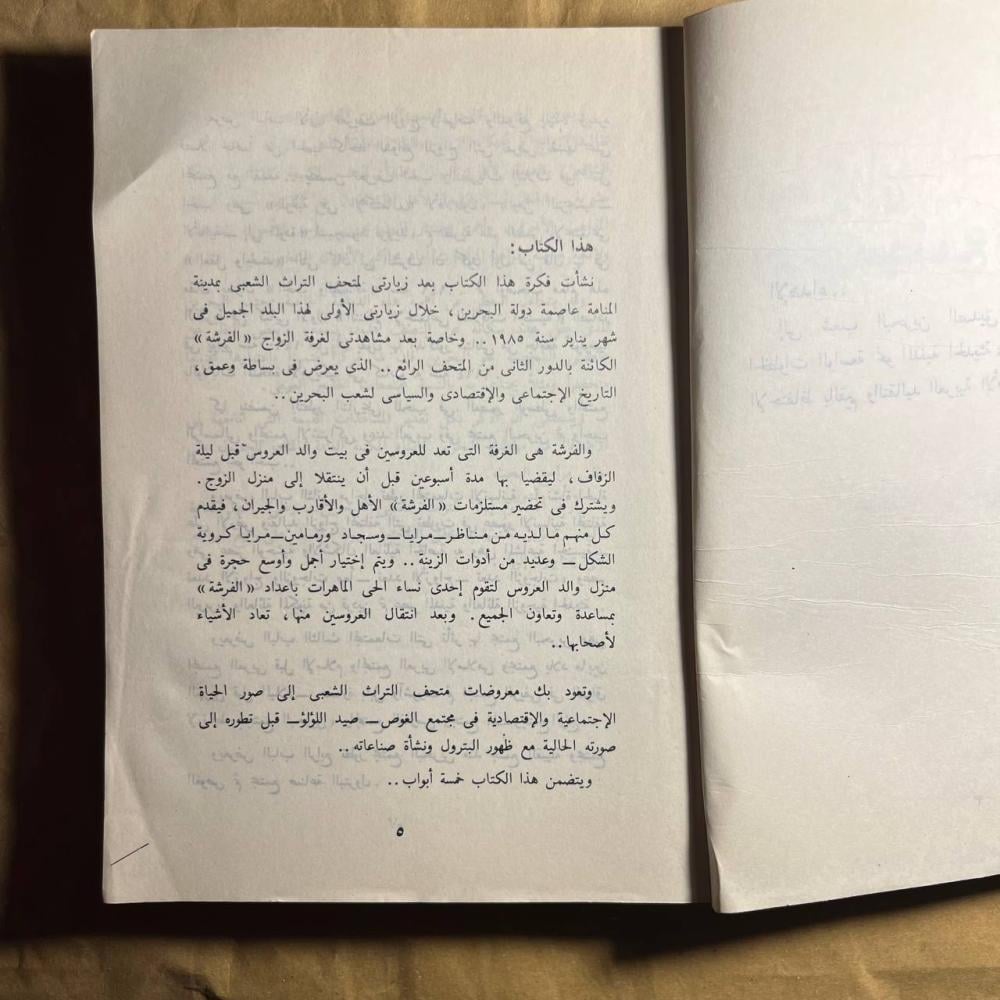 هذا الكتاب:
نشأت فكرة هذا الكتاب بعد زيارتى لمتحف التراث الشعبى بمدينة
المنامة عاصمة دولة البحرين، خلال زيارتى الأولى لهذا البلد الجميل فى
شهر يناير سنة ١٩٨٥.. وخاصة بعد مشاهدتى لغرفة الزواج «الفرشة»
الكائنة بالدور الثانى من المتحف الرائع.. الذى يعرض فى بساطة وعمق،
التاريخ الإجتماعى والإقتصادى والسياسى لشعب البحرين..
والفرشة هى الغرفة التى تعد للعروسين فى بيت والد العروس قبل ليلة
الزفاف، ليقضيا بها مدة أسبوعين قبل أن ينتقلا إلى منزل الزوج.
ويشترك فى تحضير مستلزمات «الفرشة» الأهل والأقارب والجيران، فيقدم
كل منهم ما لديه من مناظر ــ مرايا ــ وسجاد ورمامين ــ مرايا كروية
الشكل ــ وعديد من أدوات الزينة.. ويتم إختيار أجمل وأوسع حجرة فى
منزل والد العروس لتقوم إحدى نساء الحى الماهرات باعداد «الفرشة»
بمساعدة وتعاون الجميع. وبعد انتقال العروسين منها، تعاد الأشياء
لأصحابها..
وتعود بك معروضات متحف التراث الشعبى إلى صور الحياة
الإجتماعية والإقتصادية فى مجتمع الغوص ــ صيد اللؤلؤ ــ قبل تطوره إلى
صورته الحالية مع ظهور البترول ونشأة صناعاته..
ويتضمن هذا الكتاب خمسة أبواب..
٥